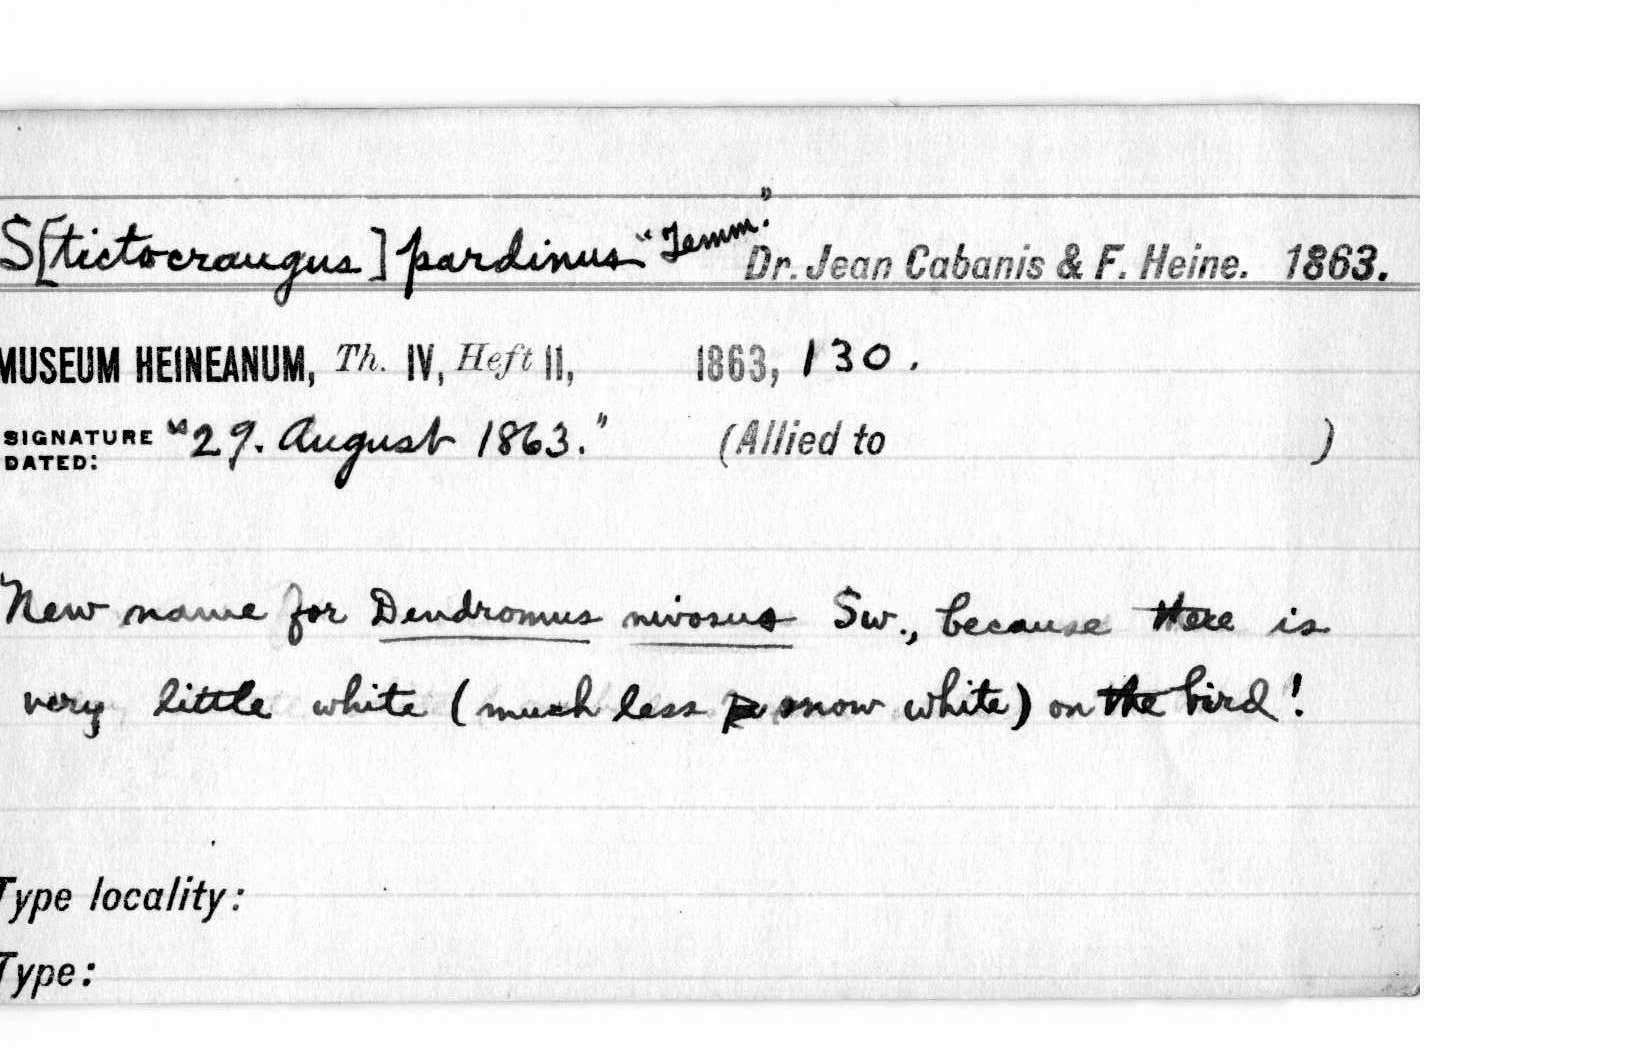 S[tictocraugus] pardinus "Temm." Dr. Jean Cabanis & F. Heine. 1863.
MUSEUM HEINEANUM, Th. IV, Heft II, 1863, 130.
SIGNATURE DATED: "29. August 1863." (Allied to )
New name for Dendromus nivosus Sw., because there is
very little white (much less snow white) on the bird!
Type locality:
Type: